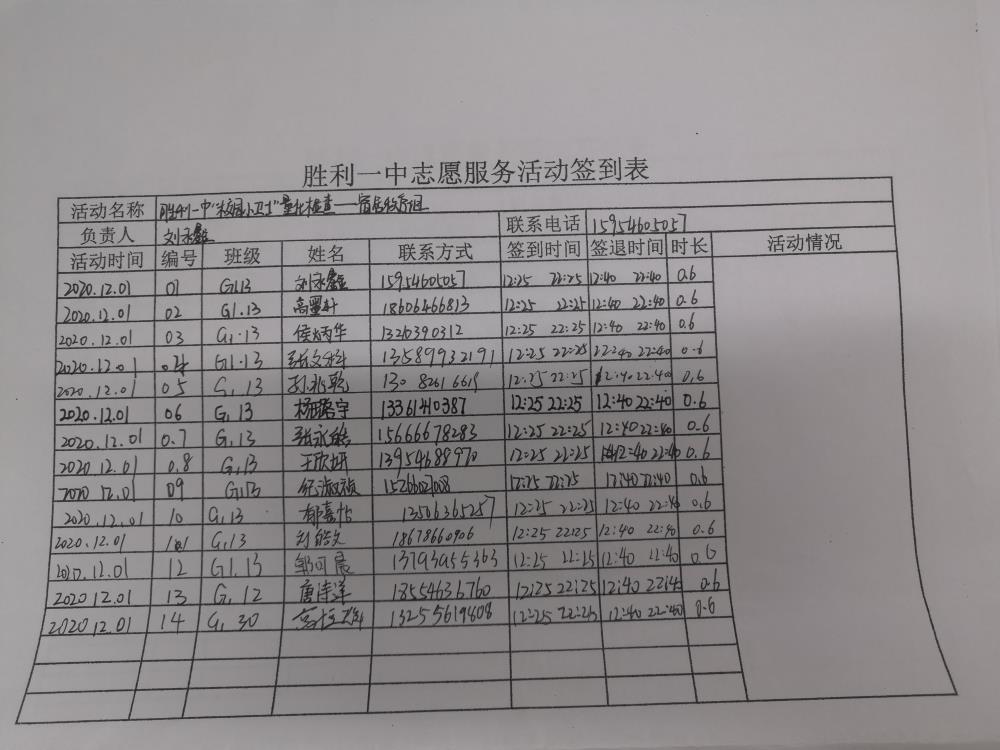 胜利一中志愿服务活动签到表
活动名称 胜利一中"校园小卫士"量化检查——宿舍
负责人 刘永鑫 联系电话 15954605057
活动时间 编号 班级 姓名 联系方式 签到时间 签退时间 时长 活动情况
2020.12.01 01 G1.13 刘永鑫 15954605057 12:25 22:25 12:40 22:40 0.6
2020.12.01 02 G1.13 高墨轩 18606466813 12:25 22:25 12:40 22:40 0.6
2020.12.01 03 G1.13 侯炳华 13210390312 12:25 22:25 12:40 22:40 0.6
2020.12.01 04 G1.13 张文科 13589932191 12:25 22:25 22:40 22:40 0.6
2020.12.01 05 G1.13 孙兆乾 12:25 22:25 12:40 22:40 0.6
2020.12.01 06 G1.13 杨璐宇 13361410387 12:25 22:25 12:40 22:40 0.6
2020.12.01 0.7 G1.13 张永皓 15666678283 12:25 22:25 12:40 22:40 0.6
2020.12.01 0.8 G1.13 王欣妍 13954688970 12:25 22:25 12:40 22:40 0.6
2020.12.01 09 G1.13 纪淑祯 12:25 22:25 12:40 22:40 0.6
2020.12.01 10 G1.13 13506365257 12:25 22:25 12:40 22:40 0.6
2020.12.01 G1.13 刘皓文 18678660906 12:25 22:25 12:40 22:40 0.6
2020.12.01 12 G1.13 邹可晨 13793955363 12:25 22:25 12:40 22:40 0.6
2020.12.01 13 G1.12 唐诗洋 18554636760 12:25 22:25 12:40 22:45 0.6
2020.12.01 14 G1.30 13255619808 12:25 22:25 12:40 22:40 0.6